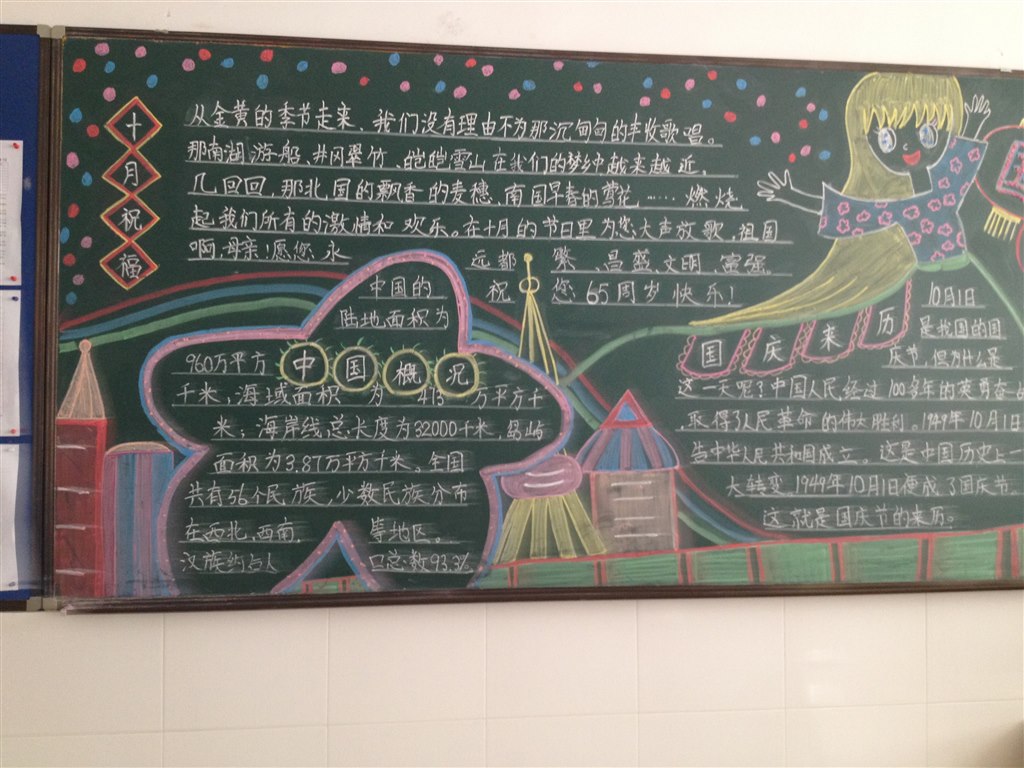 十月祝福
从金黄的季节走来、我们没有理由不为那沉甸甸的丰收歌唱。
那南湖游船、井冈翠竹、皑皑雪山在我们的梦中越来越近,
几回回,那北国的飘香的麦穗、南国早春的雪花……燃烧
起我们所有的激情和欢乐。在十月的节日里为您大声放歌,祖国
啊,母亲!愿您永远都繁、昌盛、文明、富强
祝您65周岁快乐!
中国概况
中国的
陆地面积为
960万平方
千米,海域面积为 万平方千
米;海岸线总长度为32000千米,岛屿
面积为3.87万平方千米。全国
共有56个民族,少数民族分布
在西北、西南、等地区。
汉族约占人口总数93.3%
国庆来历
10月1日
是我国的国
庆节,但为什么是
这一天呢?中国人民经过100多年的英勇奋
取得了人民革命的伟大胜利。1949年10月1日
当中华人民共和国成立。这是中国历史上一
大转变,1949年10月1日便成了国庆节。
这就是国庆节的来历。